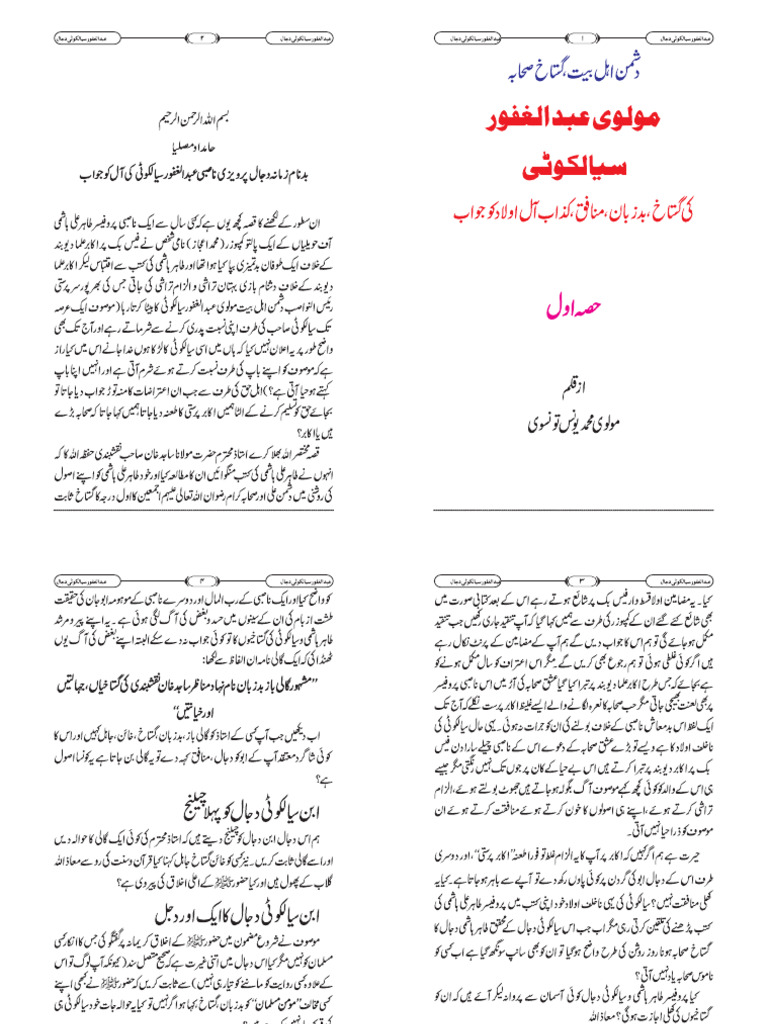 عبدالغفور سیالکوٹی دجال
۱
عبدالغفور سیالکوٹی دجال
دشمن اہل بیت، گستاخ صحابہ
مولوی عبدالغفور
سیالکوٹی
کی گستاخ، بدزبان، منافق، کذاب آل اولاد کو جواب
حصہ اول
از قلم
مولوی محمد یونس تونسوی
عبدالغفور سیالکوٹی دجال
۲
عبدالغفور سیالکوٹی دجال
بسم اللہ الرحمن الرحیم
حامداً و مصلیا
بدنام زمانہ دجال پرویزی ناصبی عبدالغفور سیالکوٹی کی آل کو جواب
ان سطور کے لکھنے کا قصہ کچھ یوں ہے کہ کئی سال سے ایک ناصبی پروفیسر طاہر علی ہاشمی
آف حویلیاں کے ایک پالتو کمپوزر (محمد اعجاز) نامی شخص نے فیس بک پر اکابر علما دیوبند
کے خلاف ایک طوفان بدتمیزی بپا کیا ہوا تھا اور طاہر ہاشمی کی کتب سے اقتباس لیکر اکابر علما
دیوبند کے خلاف دشنام بازی بہتان تراشی و الزام تراشی کی جاتی جس کی بھرپور سرپرستی
رئیس النواصب دشمن اہل بیت مولوی عبدالغفور سیالکوٹی کا بیٹا کرتا رہا (موصوف ایک عرصہ
تک سیالکوٹی صاحب کی طرف اپنی نسبت پدری کرنے سے شرماتے رہے اور آج تک بھی
واضح طور پر یہ اعلان نہیں کیا کہ ہاں میں اسی سیالکوٹی کا لڑکا ہوں خدا جانے اس میں کیا راز
ہے کہ موصوف کو اپنے باپ کی طرف نسبت کرتے ہوئے شرم آتی ہے اور انہیں اپنا باپ
کہتے ہوئے حیا آتی ہے؟) اہل حق کی طرف سے جب ان اعتراضات کا منہ توڑ جواب دیا جاتا تو
بجائے حق کو تسلیم کرنے کے الٹا ہمیں اکابر پرستی کا طعنہ دیا جاتا ہمیں کہا جاتا کہ صحابہ بڑے
ہیں یا اکابر؟
قصہ مختصر اللہ بھلا کرے استاذ محترم حضرت مولانا ساجد خان صاحب نقشبندی حفظہ اللہ کا کہ
انہوں نے طاہر علی ہاشمی کی کتب منگوائیں ان کا مطالعہ کیا اور خود طاہر علی ہاشمی کو اپنے اصول
کی روشنی میں دشمن علی اور صحابہ کرام رضوان اللہ تعالی علیہم اجمعین کا اول درجہ کا گستاخ ثابت
عبدالغفور سیالکوٹی دجال
۳
عبدالغفور سیالکوٹی دجال
کیا۔ یہ مضامین اولا قسط وار فیس بک پر شائع ہوتے رہے اس کے بعد کتابی صورت میں
بھی شائع کئے گئے ان کے کمپوزر کی طرف سے ہمیں کہا گیا کہ آپ تنقید جاری رکھیں جب تنقید
مکمل ہو جائے گی تو ہم اس کا جواب دیں گے ہم آپ کے مضامین کے پرنٹ نکال رہے
ہیں اگر کوئی غلطی ہوئی تو ہم رجوع بھی کریں گے۔ مگر اس اعتراف کو سال مکمل ہونے کو
ہے بجائے کہ جس طرح اکابر علما دیوبند پر تبرا کیا گیا عشق صحابہ کی آڑ میں اس ناصبی پروفیسر
پر بھی لعنت بھیجی جاتی مگر حب صحابہ کا نعرہ لگانے والے ایسے غلیظ اکابر پرست نکلے کہ آج تک
ایک لفظ اس بدمعاش ناصبی کے خلاف بولنے کی ان کو جرات نہ ہوئی۔ یہی حال سیالکوٹی کی
ناخلف اولاد کا ہے ویسے تو بڑے عشق صحابہ کے دعوے اس کے ناصبی چیلے سارا دن فیس
بک پر اکابر دیوبند پر تبرا کرتے ہیں اس بے حیا کے کان پر جوں تک نہیں رینگتی مگر جیسے
ہی اس کے والد کو کوئی کچھ کہے موصوف آگ بگولہ ہو جاتے ہیں جھوٹ بولتے ہوئے، الزام
تراشی کرتے ہوئے، اپنے ہی اصولوں کا خون کرتے ہوئے منافقت کرتے ہوئے ان
موصوف کو ذرا حیا نہیں آتی۔
حیرت ہے ہم اگر کہیں کہ اکابر پر آپ کا یہ الزام غلط تو فورا طعنہ ’’اکابر پرستی‘‘، اور دوسری
طرف اس کے دجال ابو کی گردن پر کوئی پاوں رکھ دے تو آپے سے باہر ہو جاتا ہے۔ کیا یہ
کھلی منافقت نہیں؟ سیالکوٹی کی یہی ناخلف اولاد خود اپنی کتب میں پروفیسر طاہر علی ہاشمی کی
کتب پڑھنے کی تلقین کرتی رہی مگر اب جب اس سیالکوٹی دجال کے محقق طاہر ہاشمی کا
گستاخ صحابہ ہونا روز روشن کی طرح واضح ہو گیا تو ان کو بھی سانپ سونگھ گیا ہے اب کسی کو
ناموس صحابہ یاد نہیں آتی؟
کیا پروفیسر طاہر ہاشمی و سیالکوٹی دجال کوئی آسمان سے پروانہ لیکر آئے ہیں کہ ان کو
گستاخیوں کی اجازت ہوگی؟ معاذ اللہ
عبدالغفور سیالکوٹی دجال
۴
عبدالغفور سیالکوٹی دجال
کو واضح کیا اور ایک ناصبی کے رب المال اور دوسرے ناصبی کے موہومہ ابو جان کی حقیقت
طشت از بام کی ان کے سینوں میں حسد و بغض کی آگ لگی ہوئی ہے۔ یہ اپنے پیر و مرشد
طاہر ہاشمی و سیالکوٹی کی گستاخیوں کا تو کوئی جواب نہ دے سکے البتہ اپنے بغض کی آگ یوں
ٹھنڈا کی کہ ایک گالی نامہ ان الفاظ سے لکھا:
’’مشہور گالی باز بدزبان نام نہاد مناظر ساجد خان نقشبندی کی گستاخیاں، جہالتیں
اور خیانتیں‘‘
اب دیکھیں جب آپ کسی کے استاذ کو گالی باز، بدزبان، گستاخ، خائن، جاہل کہیں اور اس کا
کوئی شاگرد معتقد آپ کے ابو کو دجال، منافق کہہ دے تو یہ گالی بن جاتا ہے یہ کونسا اصول
ہے؟
ابن سیالکوٹی دجال کو پہلا چیلنج
ہم اس دجال ابن دجال کو چیلنج دیتے ہیں کہ استاذ محترم کی کوئی ایک گالی کا حوالہ دیں
اور اسے گالی ثابت کریں۔ نیز کسی کو خائن گستاخ جاہل کہنا کیا قرآن و سنت کی رو سے معاذ اللہ
گلاب کے پھول ہیں اور کیا حضور ﷺ کے اعلی اخلاق کی پیروی ہے؟
ابن سیالکوٹی دجال کا ایک اور دجل
موصوف نے شروع مضمون میں حضور ﷺ کے اخلاق کریمانہ پر گفتگو کی جس کا انکار کسی
مسلمان کو نہیں مگر کیا اس دجال میں اتنی غیرت ہے کہ صحیح متصل سند (کیونکہ آپ لوگ تو اس
کے علاوہ کسی روایت کو ماننے کو تیار ہی نہیں) سے ثابت کریں کہ حضور ﷺ نے بھی اپنے
کسی مخالف ’’مومن مسلمان‘‘ کو بدزبان، گستاخ، کہا ہو اگر نہیں تو کیا یہ حوالہ جات خود سیالکوٹی ہی